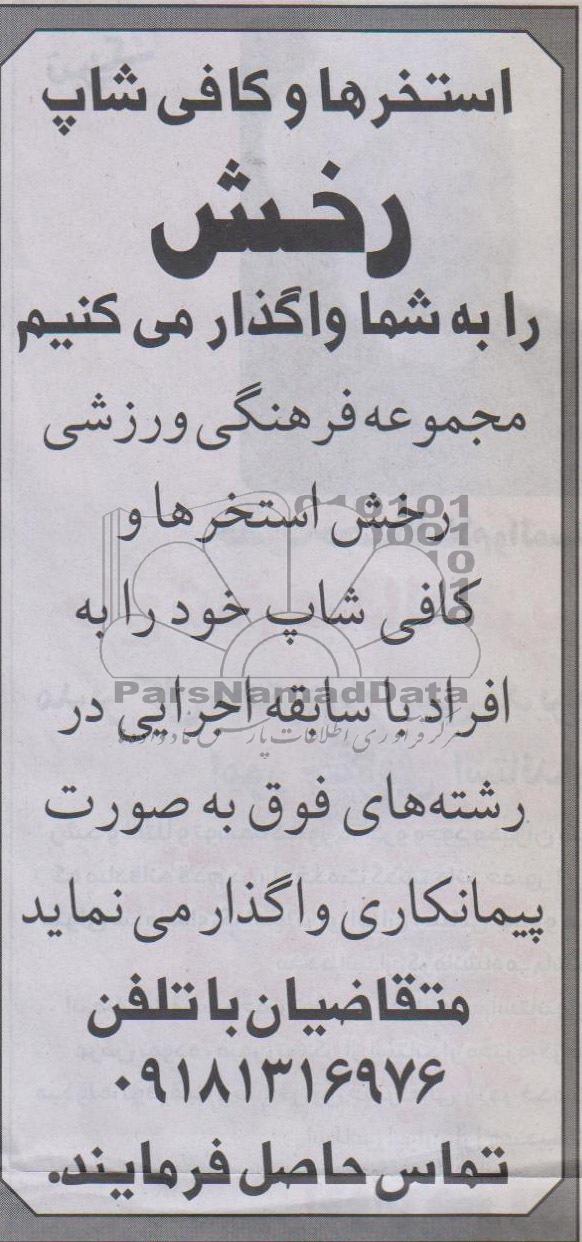 استخرها و کافی شاپ
رخش
را به شما واگذار می کنیم
مجموعه فرهنگی ورزشی
رخش استخرها و
کافی شاپ خود را به
افراد با سابقه اجرایی در
رشته‌های فوق به صورت
پیمانکاری واگذار می نماید
متقاضیان با تلفن
۰۹۱۸۱۳۱۶۹۷۶
تماس حاصل فرمایند.
ParsNamadData